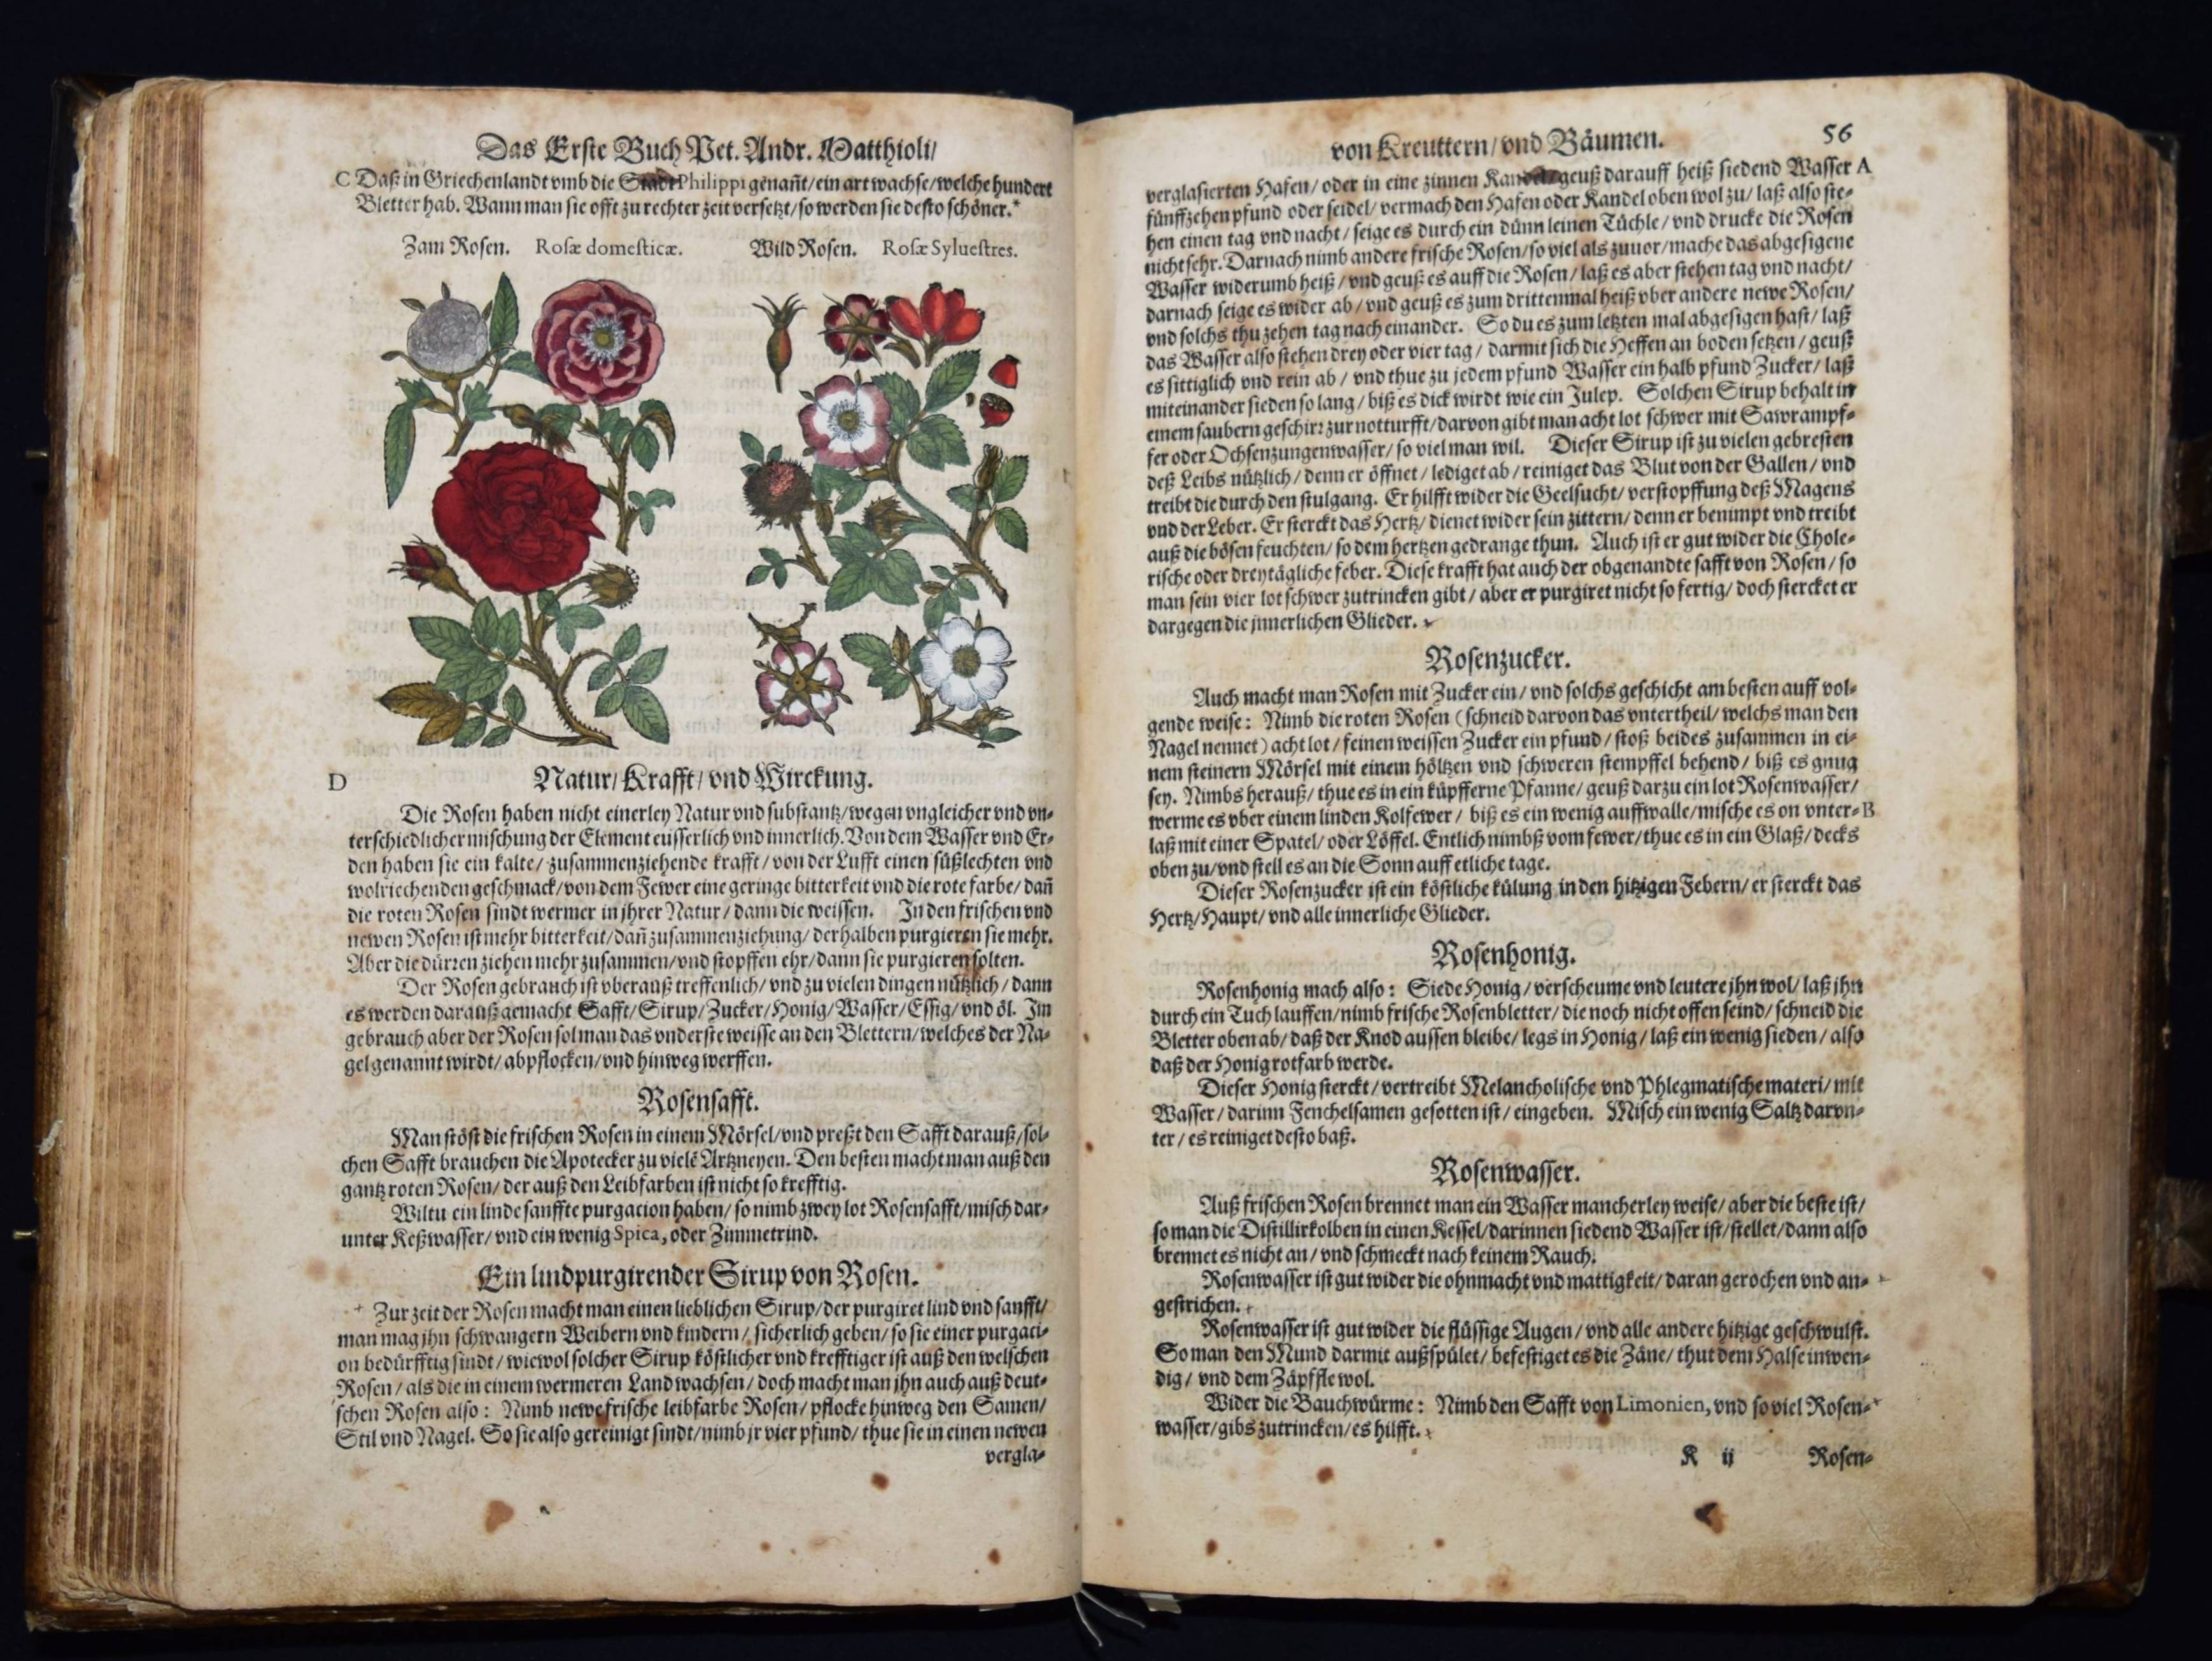 Das Erste Buch Pet. Andr. Matthioli/
C Daß in Griechenlandt vmb die Stadt Philippi genañt/ein art wachse/welche hundert
Bletter hab. Wann man sie offt zu rechter zeit versetzt/so werden sie desto schöner.*
Zam Rosen. Rosæ domesticæ. Wild Rosen. Rosæ Syluestres.
D Natur/Krafft/vnd Wirckung.
Die Rosen haben nicht einerley Natur vnd substantz/wegen vngleicher vnd vn-
terschiedlicher mischung der Element eusserlich vnd innerlich. Von dem Wasser vnd Er-
den haben sie ein kalte/zusammenziehende krafft/von der Lufft einen süßlechten vnd
wolriechenden geschmack/von dem Fewer eine geringe bitterkeit vnd die rote farbe/dañ
die roten Rosen sindt wermer in jhrer Natur/dann die weissen. In den frischen vnd
newen Rosen ist mehr bitterkeit/dañ zusammenziehung/derhalben purgieren sie mehr.
Aber die dürren ziehen mehr zusammen/vnd stopffen ehr/dann sie purgieren solten.
Der Rosen gebrauch ist vberauß treffenlich/vnd zu vielen dingen nützlich/dann
es werden darauß gemacht Safft/Sirup/Zucker/Honig/Wasser/Essig/vnd öl. Im
gebrauch aber der Rosen sol man das vnderste weisse an den Blettern/welches der Na-
gel genannt wirdt/abpflocken/vnd hinweg werffen.
Rosensafft.
Man stöst die frischen Rosen in einem Mörsel/vnd preßt den Safft darauß/sol-
chen Safft brauchen die Apotecker zu vielẽ Artzneyen. Den besten macht man auß den
gantz roten Rosen/der auß den Leibfarben ist nicht so krefftig.
Wiltu ein linde sanffte purgacion haben/so nimb zwey lot Rosensafft/misch dar-
unter Keßwasser/vnd ein wenig Spica, oder Zimmetrind.
Ein lindpurgirender Sirup von Rosen.
+ Zur zeit der Rosen macht man einen lieblichen Sirup/der purgiret lind vnd sanfft/
man mag jhn schwangern Weibern vnd kindern/sicherlich geben/so sie einer purgaci-
on bedürfftig sindt/wiewol solcher Sirup köstlicher vnd krefftiger ist auß den welschen
Rosen/als die in einem wermeren Land wachsen/doch macht man jhn auch auß deut-
schen Rosen also: Nimb newe frische leibfarbe Rosen/pflocke hinweg den Samen/
Stil vnd Nagel. So sie also gereinigt sindt/nimb jr vier pfund/thue sie in einen newen
vergla-
von Kreuttern/vnd Bäumen. 56
verglasierten Hafen/oder in eine zinnen geuß darauff heiß siedend Wasser A
fünffzehen pfund oder seidel/vermach den Hafen oder Kandel oben wol zu/laß also ste-
hen einen tag vnd nacht/seige es durch ein dünn leinen Tüchle/vnd drucke die Rosen
nicht sehr. Darnach nimb andere frische Rosen/so viel als zuuor/mache das abgesigene
Wasser widerumb heiß/vnd geuß es auff die Rosen/laß es aber stehen tag vnd nacht/
darnach seige es wider ab/vnd geuß es zum drittenmal heiß vber andere newe Rosen/
vnd solchs thu zehen tag nach einander. So du es zum letzten mal abgesigen hast/laß
das Wasser also stehen drey oder vier tag/darmit sich die Heffen an boden setzen/geuß
es sittiglich vnd rein ab/vnd thue zu jedem pfund Wasser ein halb pfund Zucker/laß
miteinander sieden so lang/biß es dick wirdt wie ein Julep. Solchen Sirup behalt in
einem saubern geschirr zur notturfft/darvon gibt man acht lot schwer mit Sawrampf-
fer oder Ochsenzungenwasser/so viel man wil. Dieser Sirup ist zu vielen gebresten
deß Leibs nützlich/denn er öffnet/lediget ab/reiniget das Blut von der Gallen/vnd
treibt die durch den stulgang. Er hilfft wider die Geelsucht/verstopffung deß Magens
vnd der Leber. Er sterckt das Hertz/dienet wider sein zittern/denn er benimpt vnd treibt
auß die bösen feuchten/so dem hertzen gedrange thun. Auch ist er gut wider die Chole-
rische oder dreytägliche feber. Diese krafft hat auch der obgenandte safft von Rosen/so
man sein vier lot schwer zutrincken gibt/aber er purgiret nicht so fertig/doch stercket er
dargegen die jnnerlichen Glieder.
Rosenzucker.
Auch macht man Rosen mit Zucker ein/vnd solchs geschicht am besten auff vol-
gende weise: Nimb die roten Rosen (schneid darvon das vntertheil/welchs man den
Nagel nennet) acht lot/feinen weissen Zucker ein pfund/stoß beides zusammen in ei-
nem steinern Mörsel mit einem höltzen vnd schweren stempffel behend/biß es gnug
sey. Nimbs herauß/thue es in ein küpfferne Pfanne/geuß darzu ein lot Rosenwasser/
werme es vber einem linden Kolfewer/biß es ein wenig auffwalle/mische es on vnter- B
laß mit einer Spatel/oder Löffel. Entlich nimbß vom fewer/thue es in ein Glaß/decks
oben zu/vnd stell es an die Sonn auff etliche tage.
Dieser Rosenzucker ist ein köstliche külung in den hitzigen Febern/er sterckt das
Hertz/Haupt/vnd alle innerliche Glieder.
Rosenhonig.
Rosenhonig mach also: Siede Honig/verscheume vnd leutere jhn wol/laß jhn
durch ein Tuch lauffen/nimb frische Rosenbletter/die noch nicht offen seind/schneid die
Bletter oben ab/daß der Knod aussen bleibe/legs in Honig/laß ein wenig sieden/also
daß der Honig rotfarb werde.
Dieser Honig sterckt/vertreibt Melancholische vnd Phlegmatische materi/mit
Wasser/darinn Fenchelsamen gesotten ist/eingeben. Misch ein wenig Saltz darvn-
ter/es reiniget desto baß.
Rosenwasser.
Auß frischen Rosen brennet man ein Wasser mancherley weise/aber die beste ist/
so man die Distillirkolben in einen Kessel/darinnen siedend Wasser ist/stellet/dann also
brennet es nicht an/vnd schmeckt nach keinem Rauch.
Rosenwasser ist gut wider die ohnmacht vnd mattigkeit/daran gerochen vnd an-
gestrichen.
Rosenwasser ist gut wider die flüssige Augen/vnd alle andere hitzige geschwulst.
So man den Mund darmit außspület/befestiget es die Zäne/thut dem Halse inwen-
dig/vnd dem Zäpffle wol.
Wider die Bauchwürme: Nimb den Safft von Limonien, vnd so viel Rosen-
wasser/gibs zutrincken/es hilfft.
K ij Rosen-